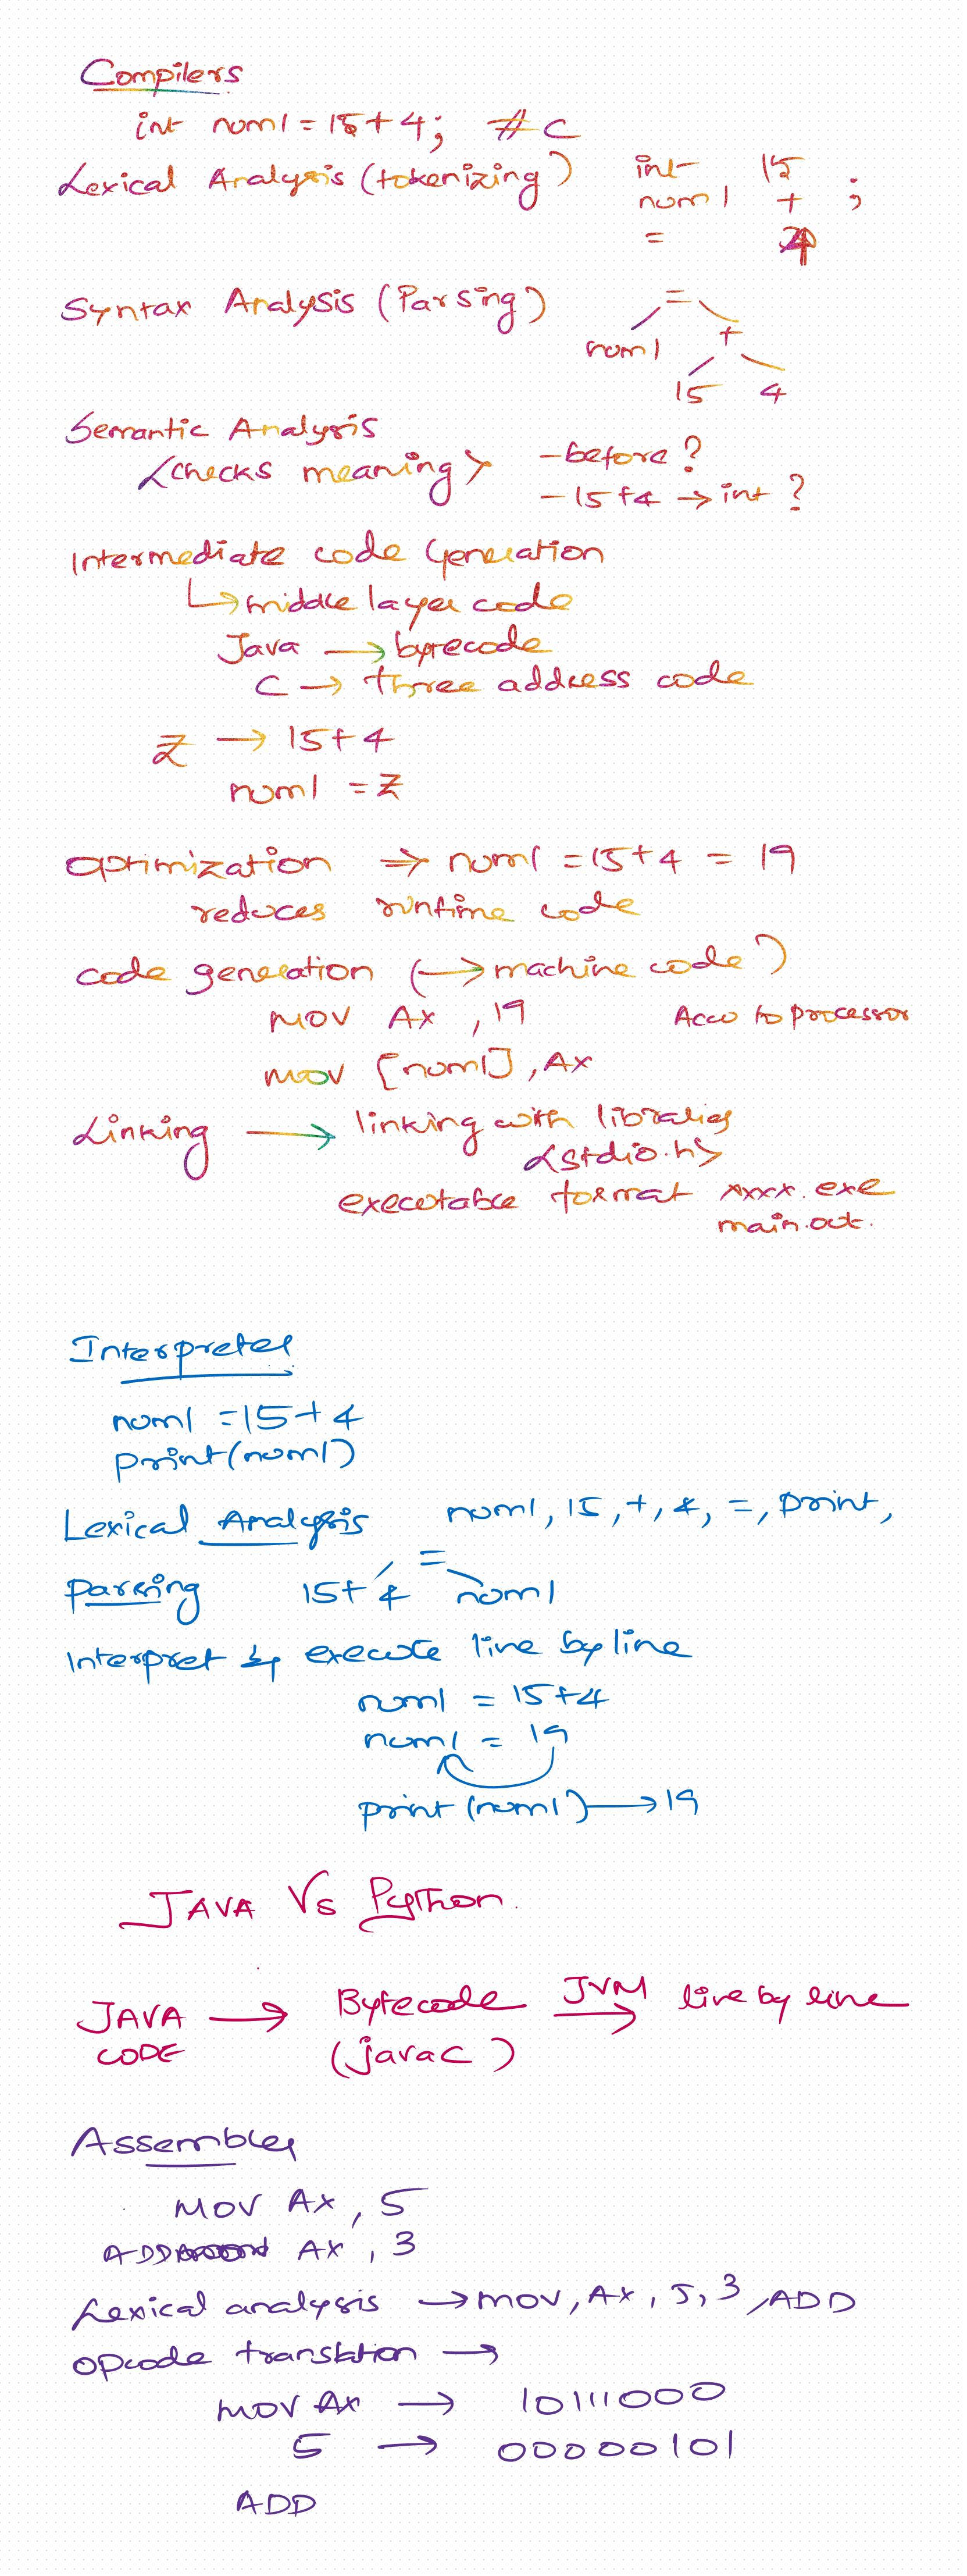 Compilers
int num1 = 15+4; #C
Lexical Analysis (tokenizing) int 15
num1 + ;
= 4
Syntax Analysis (Parsing) =
num1 +
15 4
Semantic Analysis
<checks meaning> - before ?
- 15+4 → int ?
Intermediate code Generation
↳ middle layer code
Java → bytecode
C → three address code
Z → 15+4
num1 = Z
optimization ⇒ num1 = 15+4 = 19
reduces runtime code
code generation (→ machine code)
MOV Ax , 19 Acco to processor
mov [num1] , Ax
Linking → linking with libraries
<stdio.h>
executable format xxxx.exe
main.out.
Interpreter
num1 = 15+4
print(num1)
Lexical Analysis num1, 15, +, 4, =, print,
=
Parsing 15+4 num1
Interpret & execute line by line
num1 = 15+4
num1 = 19
print (num1) → 19
JAVA Vs Python.
JAVA → Bytecode JVM → line by line
CODE (javac)
Assembler
MOV Ax , 5
ADD Ax , 3
Lexical analysis → mov, Ax, 5, 3, ADD
opcode translation →
MOV Ax → 10111000
5 → 00000101
ADD